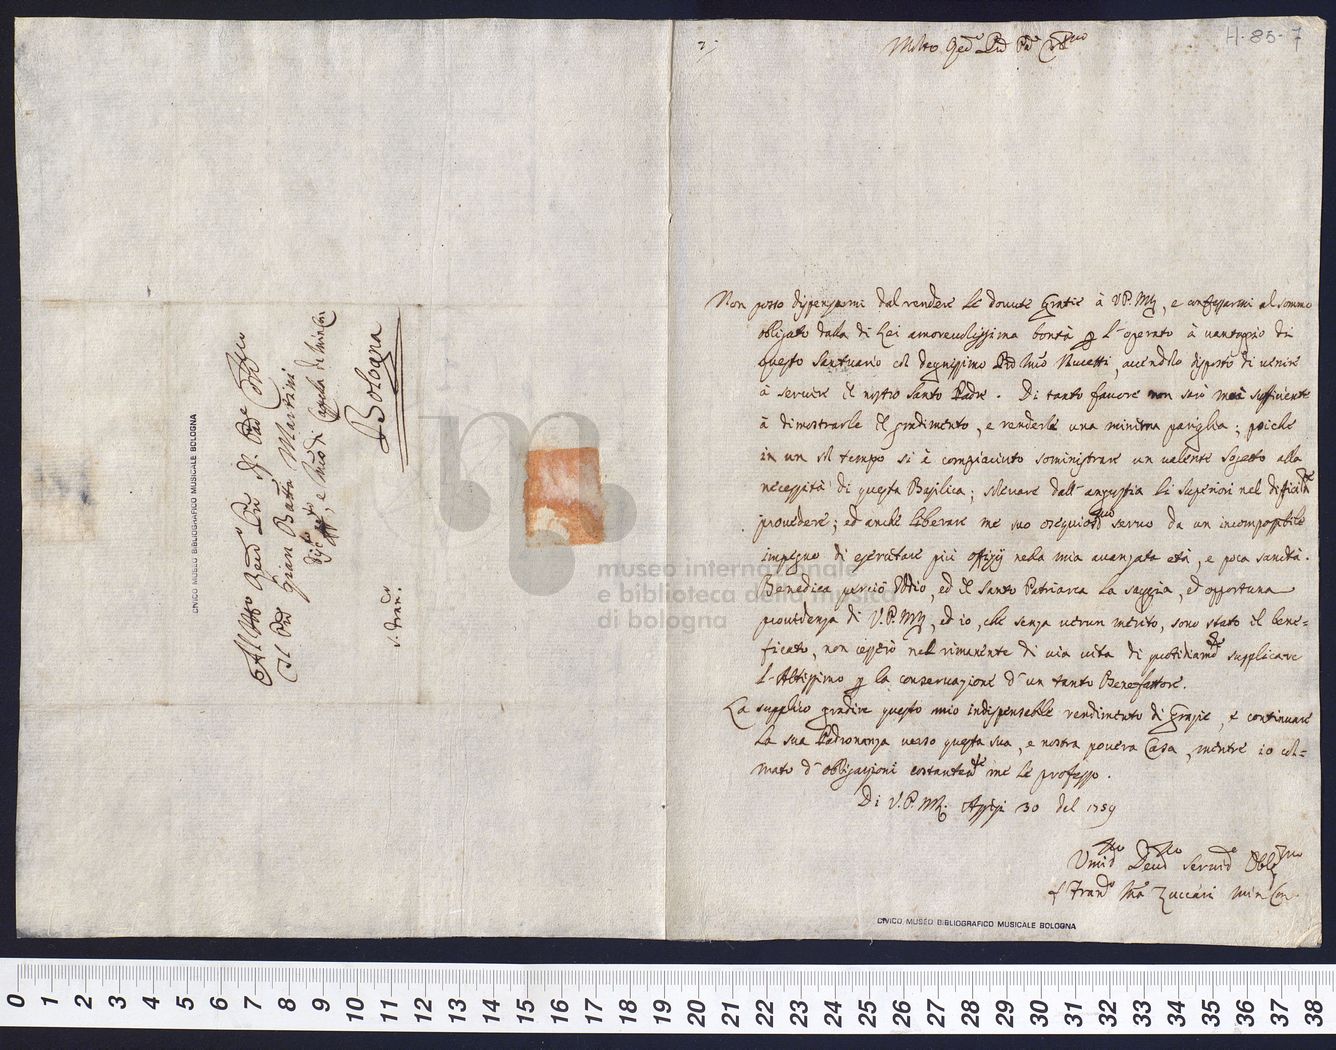 H-85-7
Molto Rev.do Pred Pad.e
Non posso dispensarmi dal rendere le dovute Gratie à V.P. M.R., e confessarmi al sommo
obligato dalla di Lei amorevolissima bontà per l'operato à vantaggio di
questo Santuario col degnissimo Pad Mro, avendolo disposto di venire
à servire il nostro Santo Padre. Di tanto favore non sarò mai sufficiente
à dimostrarle il gradimento, e renderle una minima pariglia; poiché
in un sol tempo si è compiaciuto somministrare un valente sogetto alla
necessità di questa Basilica; sollevare dall'angustia li Superiori nel
provedere; ed anche liberare me suo ossequioso servo da un incompossibile
impegno di esercitare più offizij nella mia avanzata età, e poca sanità.
Benedica perciò Iddio, ed il Santo Patriarca la saggia, ed opportuna
providenza di V.P. M.R., ed io, che senza verun merito, sono stato il bene=
ficato, non cesserò nel rimanente di mia vita di quotidiamte supplicare
l'Altissimo per la conservazione d'un tanto Benefattore.
La supplico gradire questo mio indispensabile rendimento di Grazie, e continuare
la sua Padronanza verso questa sua, e nostra povera Casa, mentre io col=
mato d'obligazioni costantemte me le professo.
Di V.P. M.R. Assisi 30 del 1759
Umilmo Devmo Servid.e Obblmo
f. Fran.o Ma Zuccari Min Con.
CIVICO MUSEO BIBLIOGRAFICO MUSICALE BOLOGNA
Il Pad Gian Batta Martini
e Mro di Capella de Min Con
Bologna
S. Fran.co
CIVICO MUSEO BIBLIOGRAFICO MUSICALE BOLOGNA
museo internazionale
e biblioteca della musica
di bologna
0 1 2 3 4 5 6 7 8 9 10 11 12 13 14 15 16 17 18 19 20 21 22 23 24 25 26 27 28 29 30 31 32 33 34 35 36 37 38